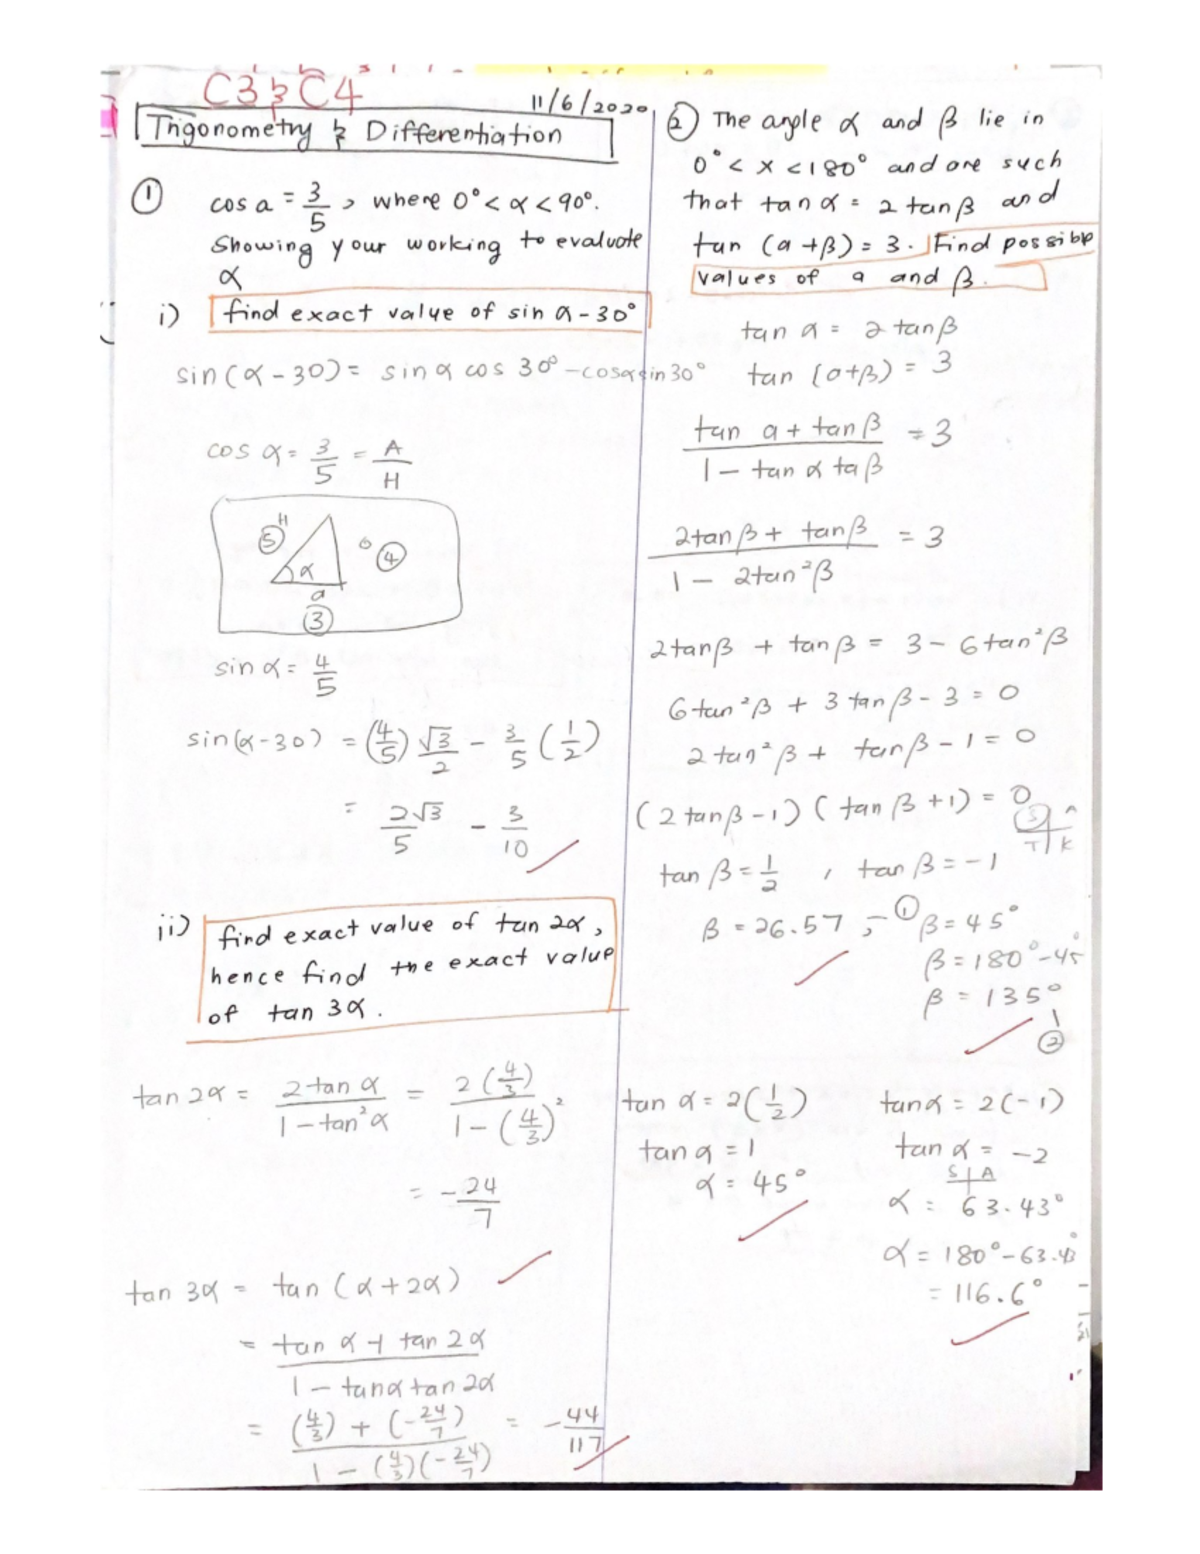 C3 & C4
11/6/2020
Trigonometry & Differentiation
① cos a = 3/5 , where 0° < α < 90°.
Showing your working to evaluate
α
i) find exact value of sin α - 30°
sin(α - 30) = sin α cos 30° - cosα sin 30°
cos α = 3/5 = A/H
H
⑤ α o ④
a
③
sin α = 4/5
sin(α - 30) = (4/5) √3/2 - 3/5 (1/2)
= 2√3/5 - 3/10
ii) find exact value of tan 2α,
hence find the exact value
of tan 3α.
tan 2α = 2 tan α / 1 - tan²α = 2(4/3) / 1 - (4/3)²
= -24/7
tan 3α = tan (α + 2α)
= tan α + tan 2α / 1 - tanα tan 2α
= (4/3) + (-24/7) / 1 - (4/3)(-24/7) = -44/117
② The angle α and β lie in
0° < x < 180° and are such
that tan α = 2 tan β and
tan (a + β) = 3. Find possible
values of a and β.
tan α = 2 tan β
tan (a+β) = 3
tan a + tan β / 1 - tan α ta β = 3
2tan β + tan β / 1 - 2tan²β = 3
2tanβ + tan β = 3 - 6 tan²β
6 tan²β + 3 tan β - 3 = 0
2 tan²β + tan β - 1 = 0
(2 tan β - 1) ( tan β + 1) = 0
S A
T K
tan β = 1/2 , tan β = -1
β = 26.57 , - ① β = 45°
β = 180° - 45°
β = 135°
②
tan α = 2(1/2)
tan α = 1
α = 45°
tan α = 2(-1)
tan α = -2
S A
α = 63.43°
α = 180° - 63.43°
= 116.6°